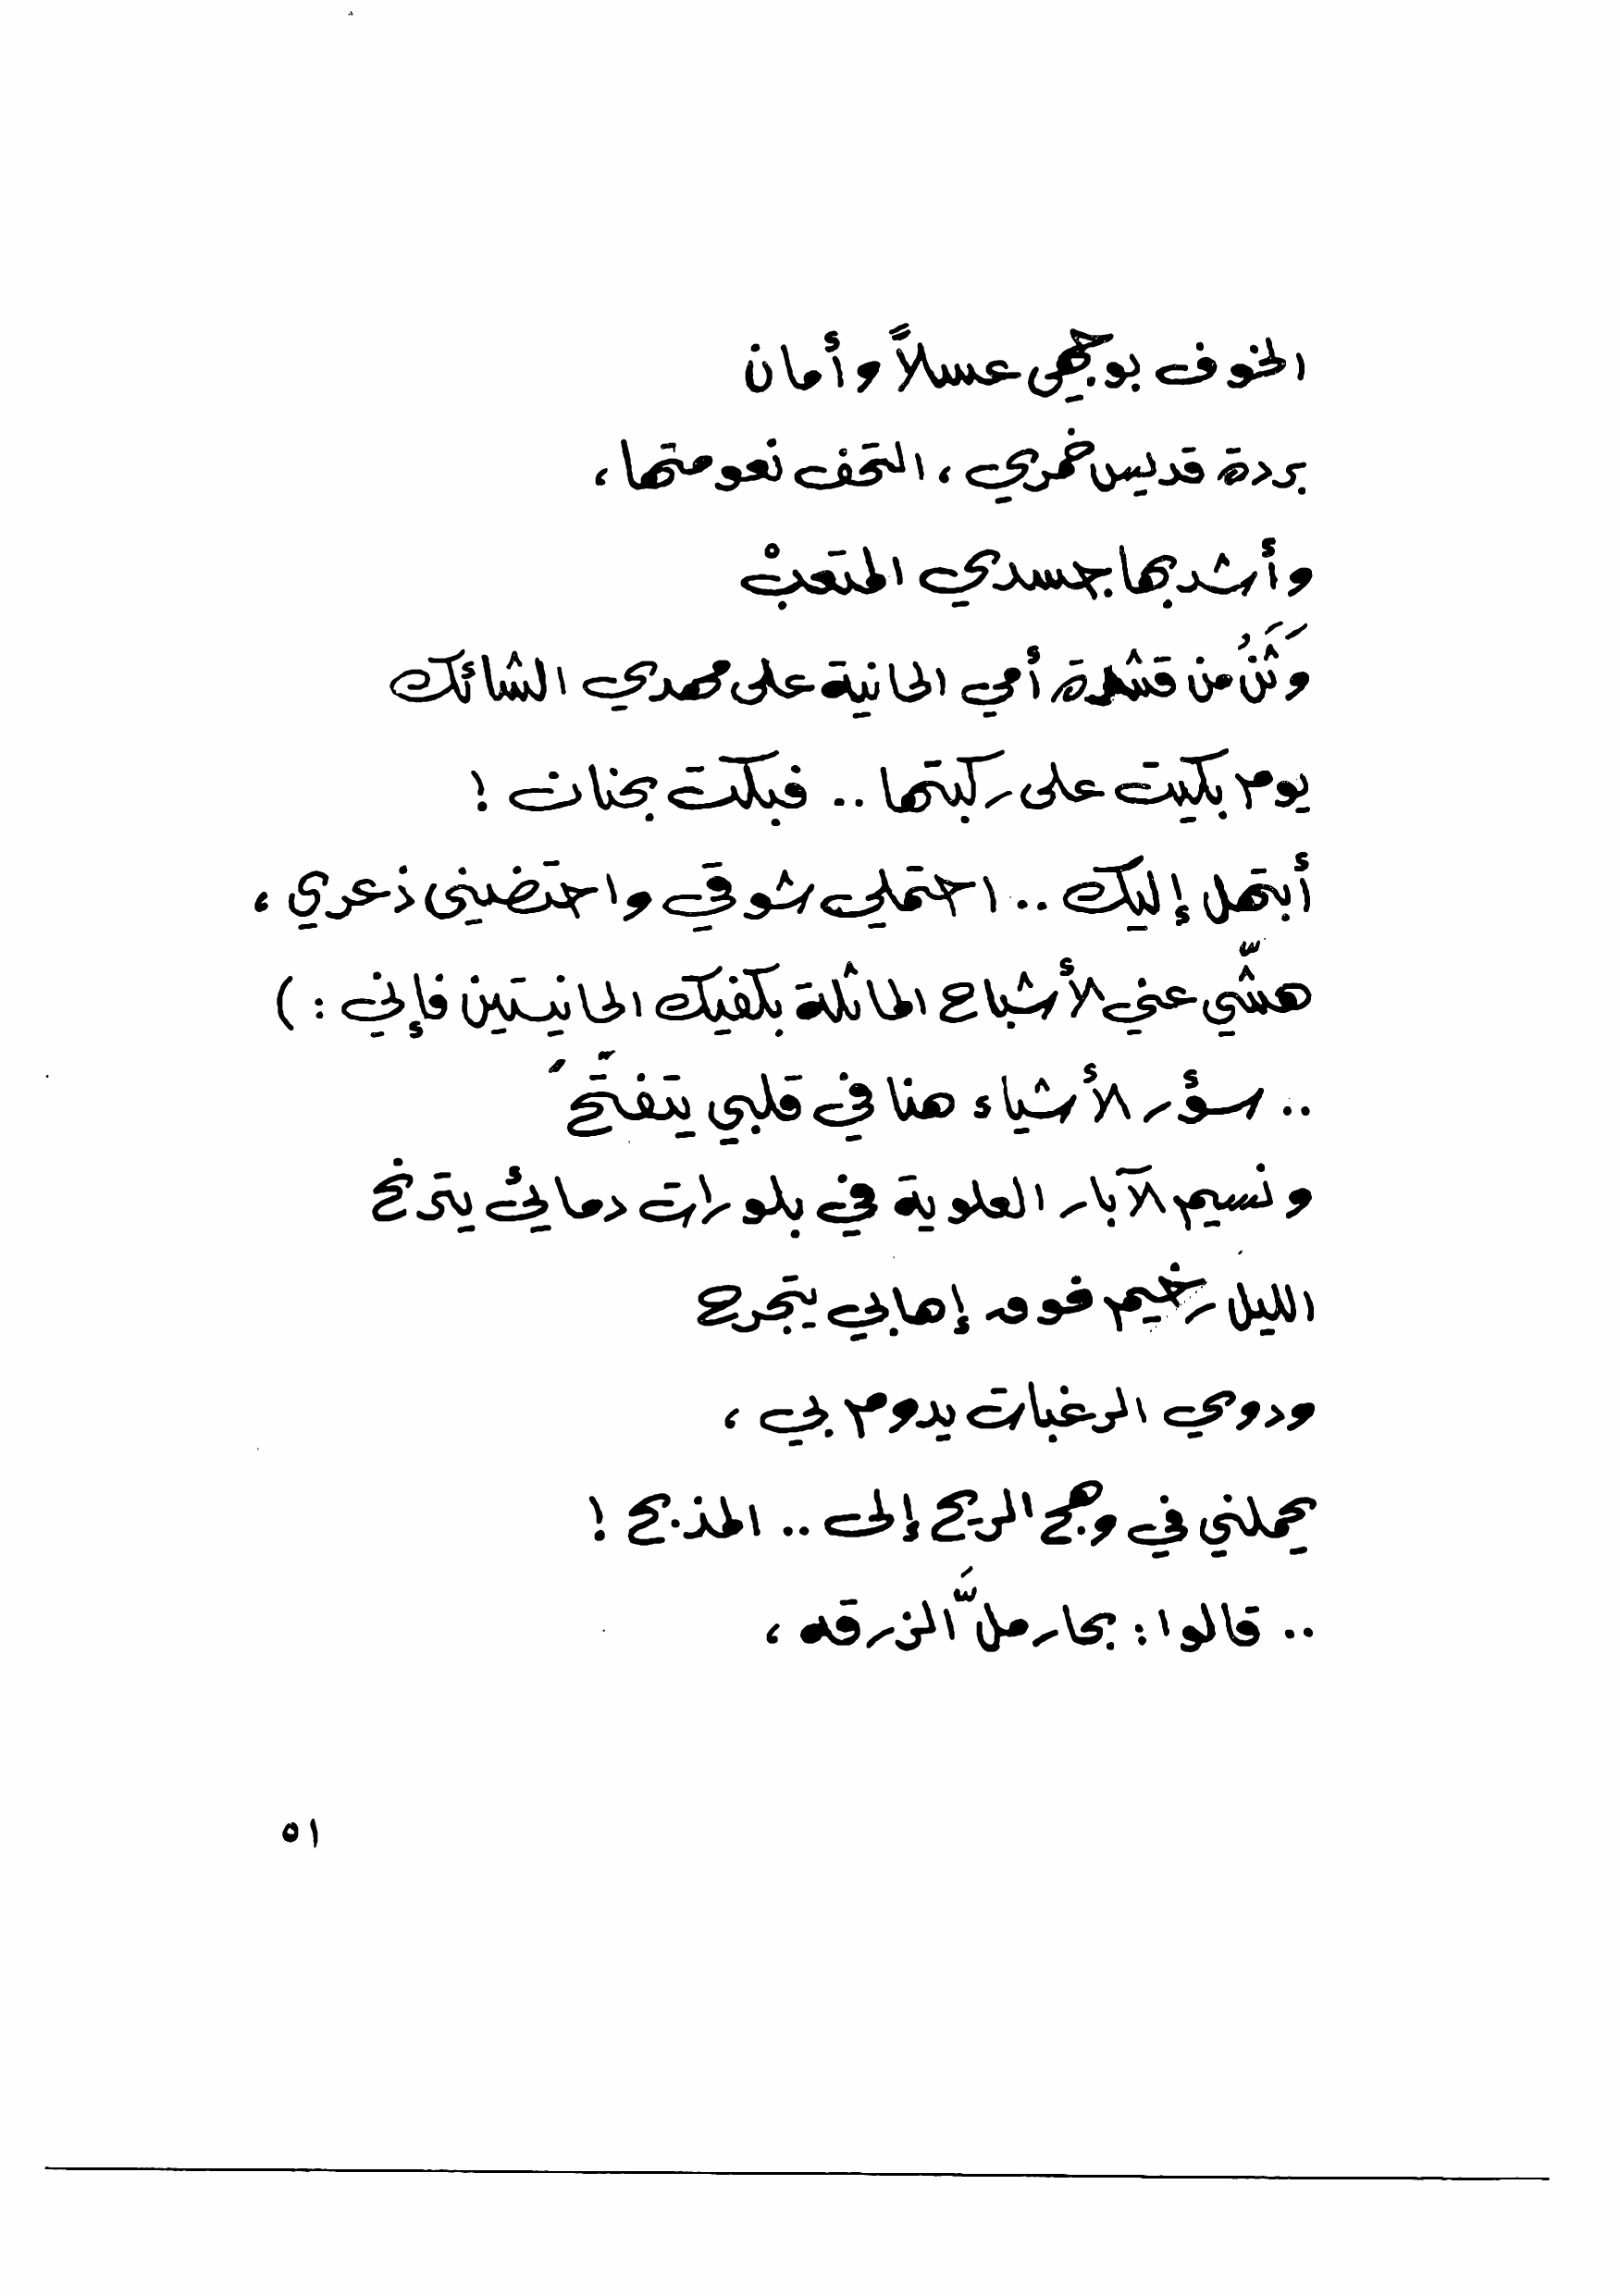 الخوف بوجهي عسلاً وأمان
بردة قديس خمري ، التحف نعومتها ،
وأشد بها جسدي المتعبْ
وَثَنُ من قشرة أمي الحانية على مهدي الشائك
يوم بكيت على ركبتها .. فبكت بحنان !
أبتهل إليك .. احتملي شوقي واحتضيني ذعري ،
هشّي عني الأشباح الماثلة بكفيك الحانيتين فإني : )
.. سؤر الأشياء هنا في قلبي يتفتّحُ
ونسيم الآبار العلوية في بلورات دمائي يترنح
الليل رخيم فوق إهابي يتجرح
ودوي الرغبات يدوم بي ،
يحملني في وهج الريح إلى .. المذبح !
.. قالوا : بحار ملَّ الزرقه ،
٥١